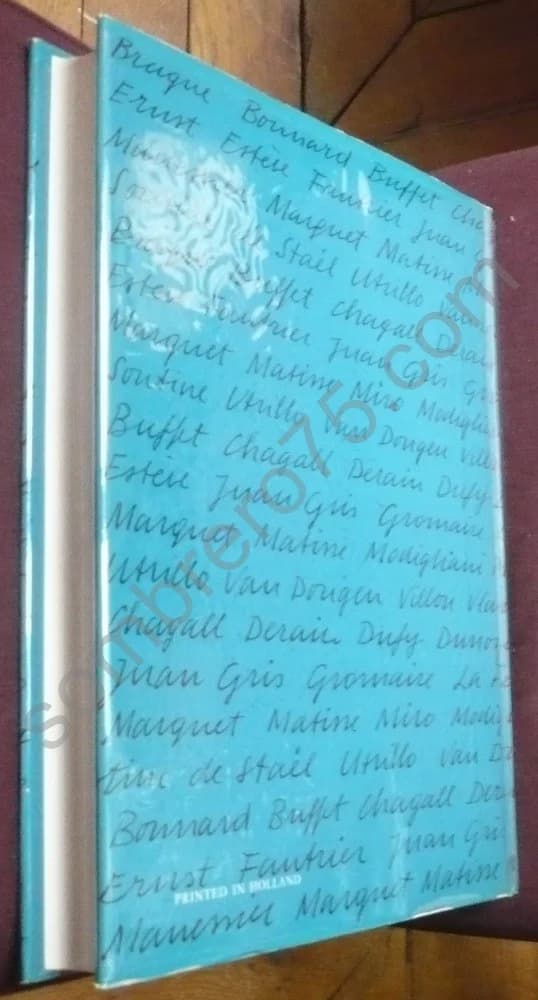 Braque Bonnard Buffet Cha
Ernst Estève Fautrier Juan
Manessier Marquet Matisse
de Staël Utrillo
Buffet Chagall Derain
Estève Fautrier Juan Gris Gro
Marquet Matisse Miro Modiglian
Soutine Utrillo Van Dongen Villo
Buffet Chagall Derain Dufy
Estève Juan Gris Gromaire
Marquet Matisse Modigliani
Utrillo Van Dongen Villon Vlam
Chagall Derain Dufy Dunoye
Juan Gris Gromaire La Fr
Marquet Matisse Miro Modigl
tine de Staël Utrillo Van Do
Bonnard Buffet Chagall Dera
Ernst Fautrier Juan Gris
PRINTED IN HOLLAND
Manessier Marquet Matisse
sombrero75.com